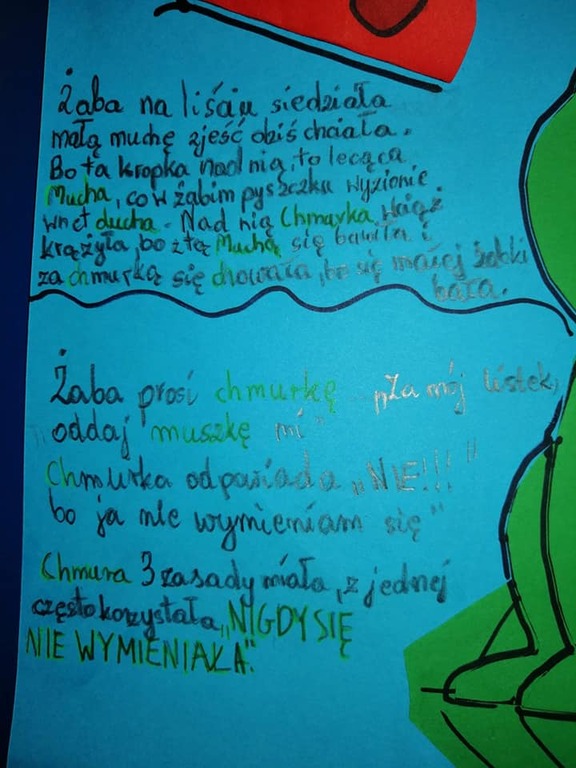 Żaba na liściu siedziała
małą muchę zjeść dziś chciała.
Bo ta kropka nad nią, to lecąca
Mucha, co w żabim pyszczku wyzionie
wnet ducha. Nad nią Chmurka wciąż
krążyła, bo z tą Muchą się bawiła i
za chmurką się chowała, bo się małej żabki
bała.
Żaba prosi chmurkę „Za mój listek,
oddaj muszkę mi"
Chmurka odpowiada „NIE!!!"
bo ja nie wymieniam się"
Chmura 3 zasady miała, z jednej
często korzystała „NIGDY SIĘ
NIE WYMIENIAŁA".